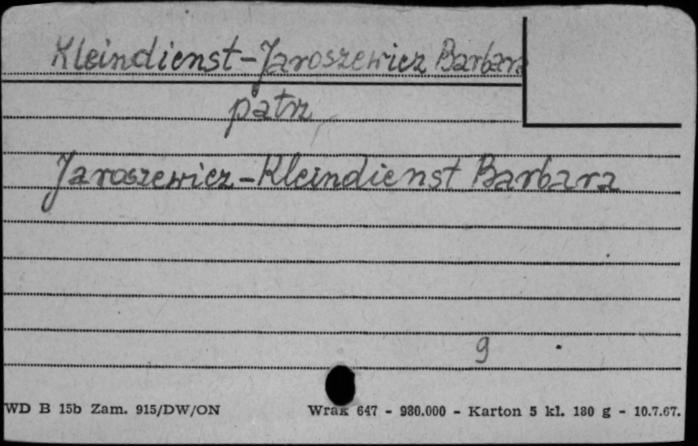 Kleindienst-Jaroszewicz Barbara
patrz
Jaroszewicz-Kleindienst Barbara
9
WD B 15b Zam. 915/DW/ON Wrak 647 - 980.000 - Karton 5 kl. 180 g - 10.7.67.